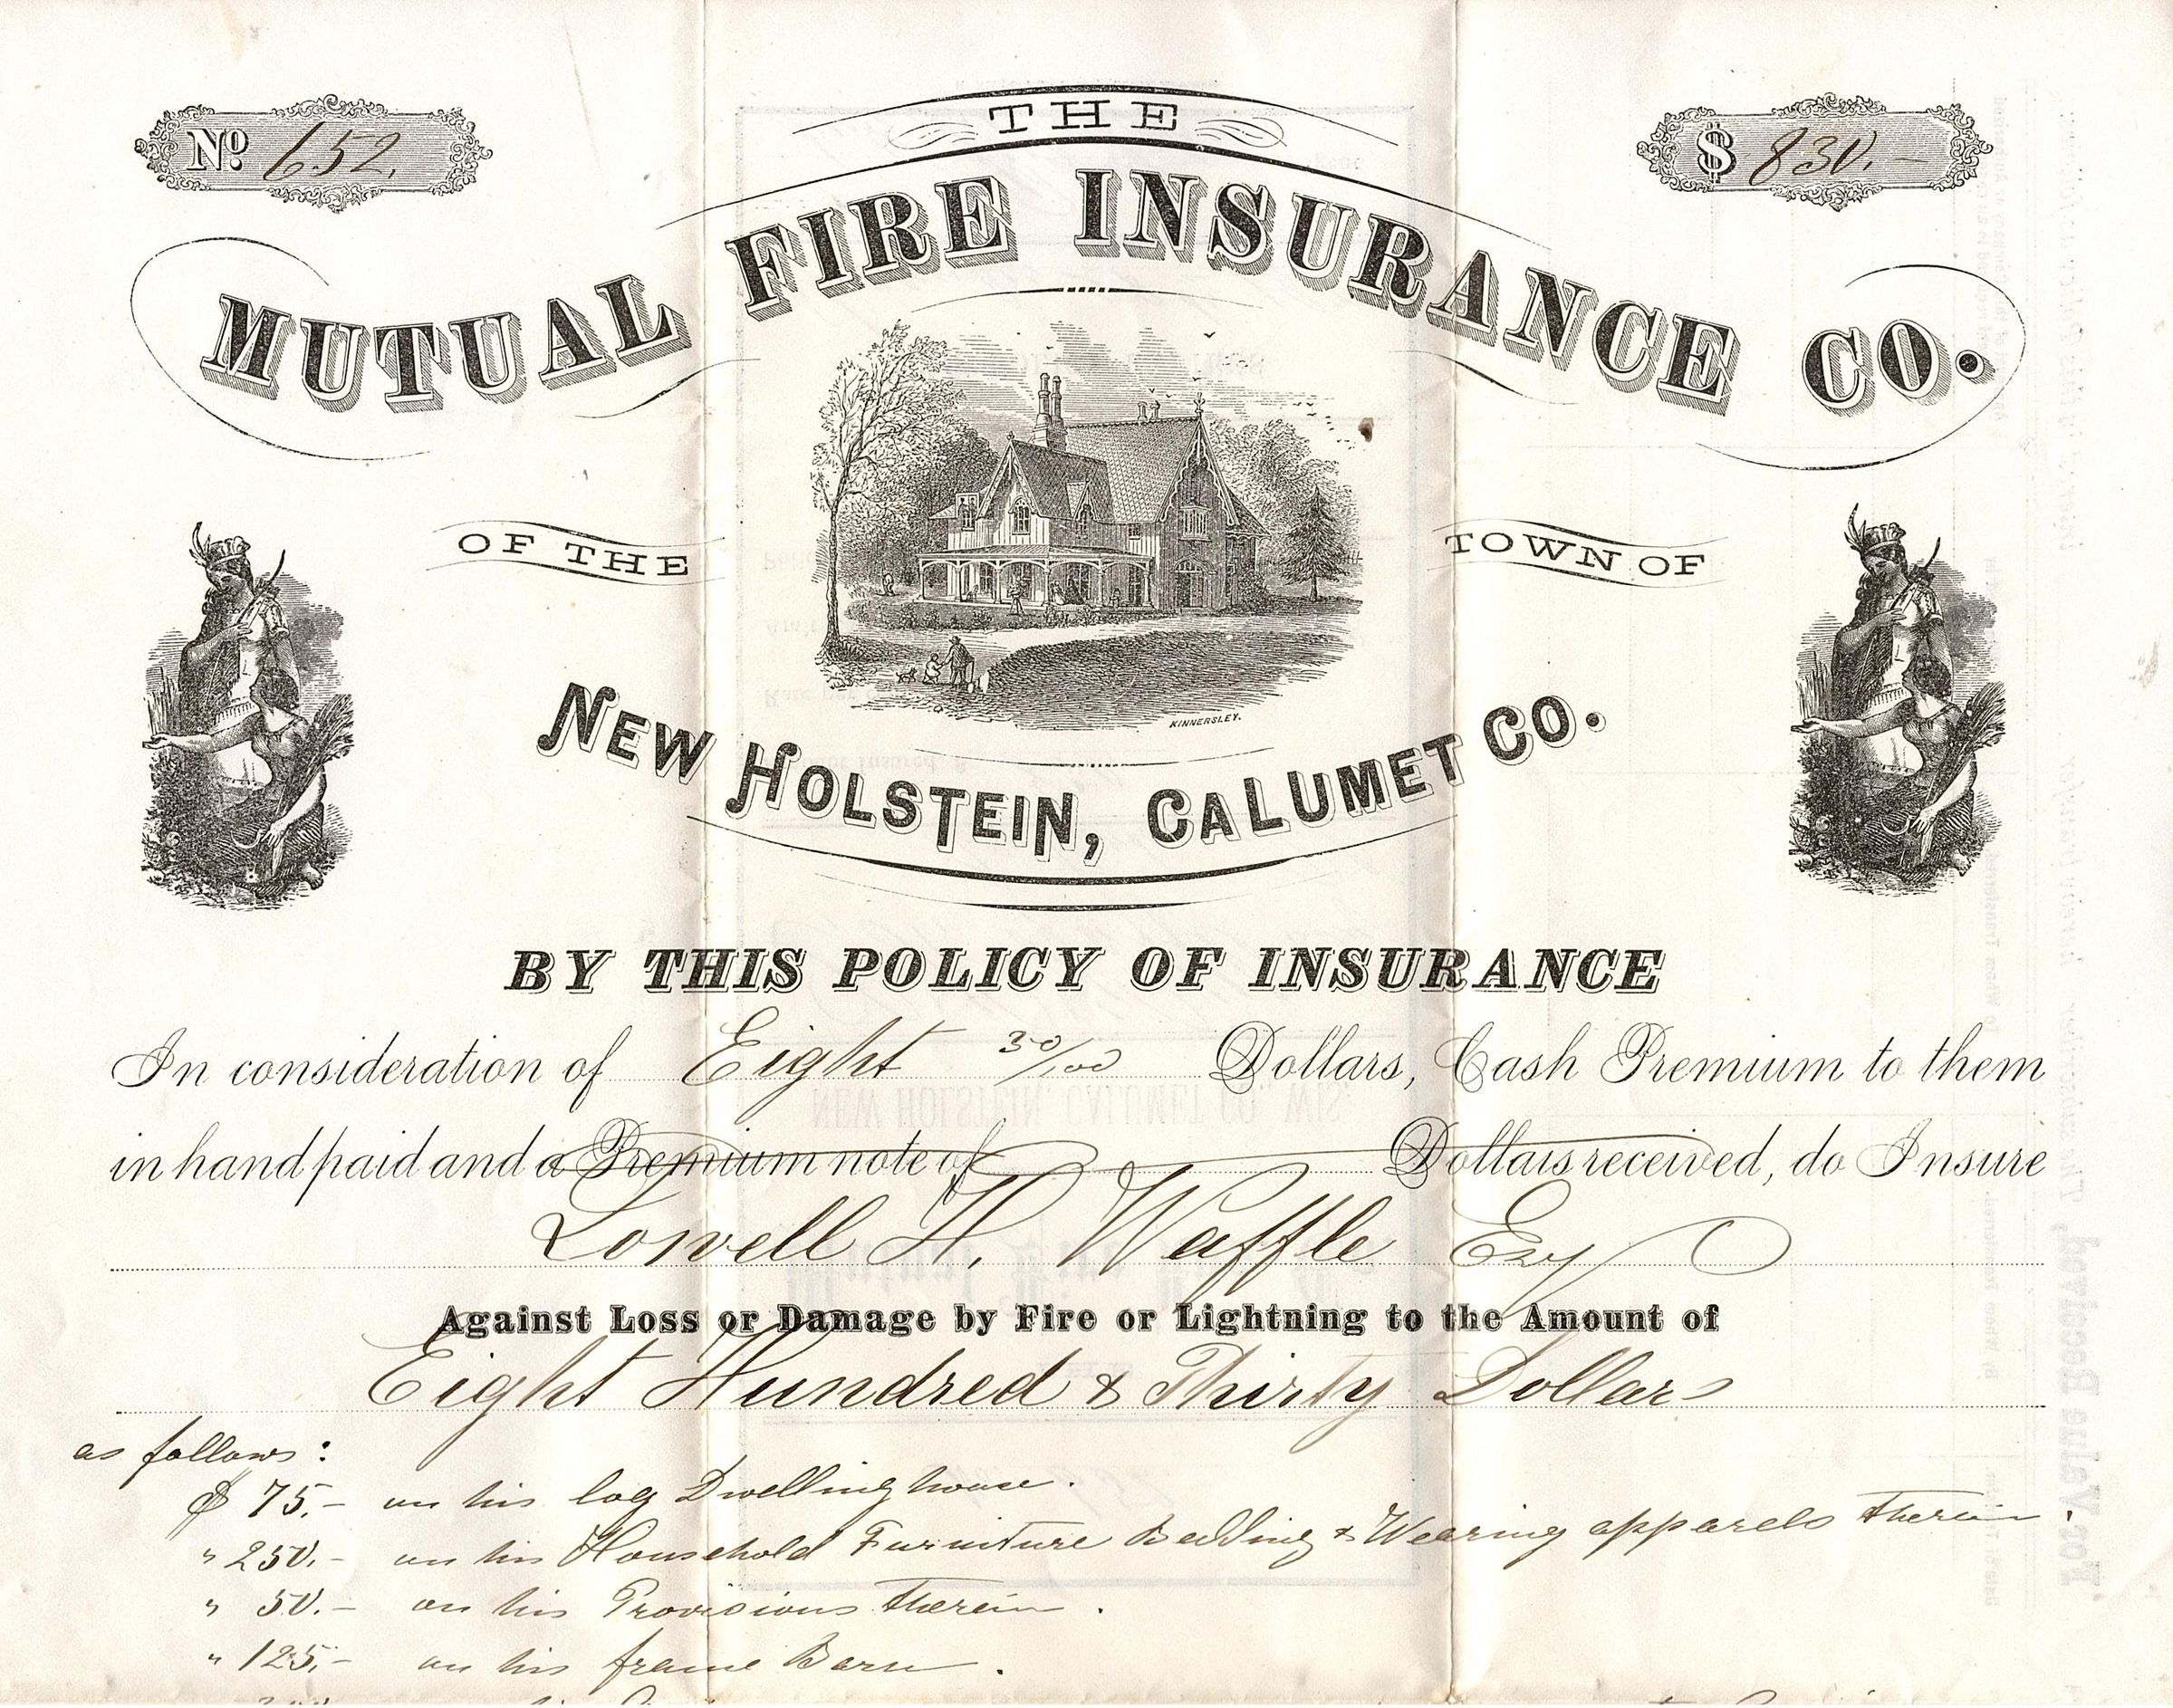 No 652.
$ 830.–
THE
MUTUAL FIRE INSURANCE CO.
OF THE
TOWN OF
KINNERSLEY.
NEW HOLSTEIN, CALUMET CO.
BY THIS POLICY OF INSURANCE
In consideration of Eight 30/100 Dollars, Cash Premium to them
in hand paid and a Premium note of Dollars received, do Insure
Lowell H. Waffle Esq
Against Loss or Damage by Fire or Lightning to the Amount of
Eight Hundred & Thirty Dollars
as follows:
$ 75.– on his log Dwelling house.
" 250.– on his Household Furniture Bedding & Wearing apparels therein.
" 50.– on his Provisions therein.
" 125.– on his frame Barn.